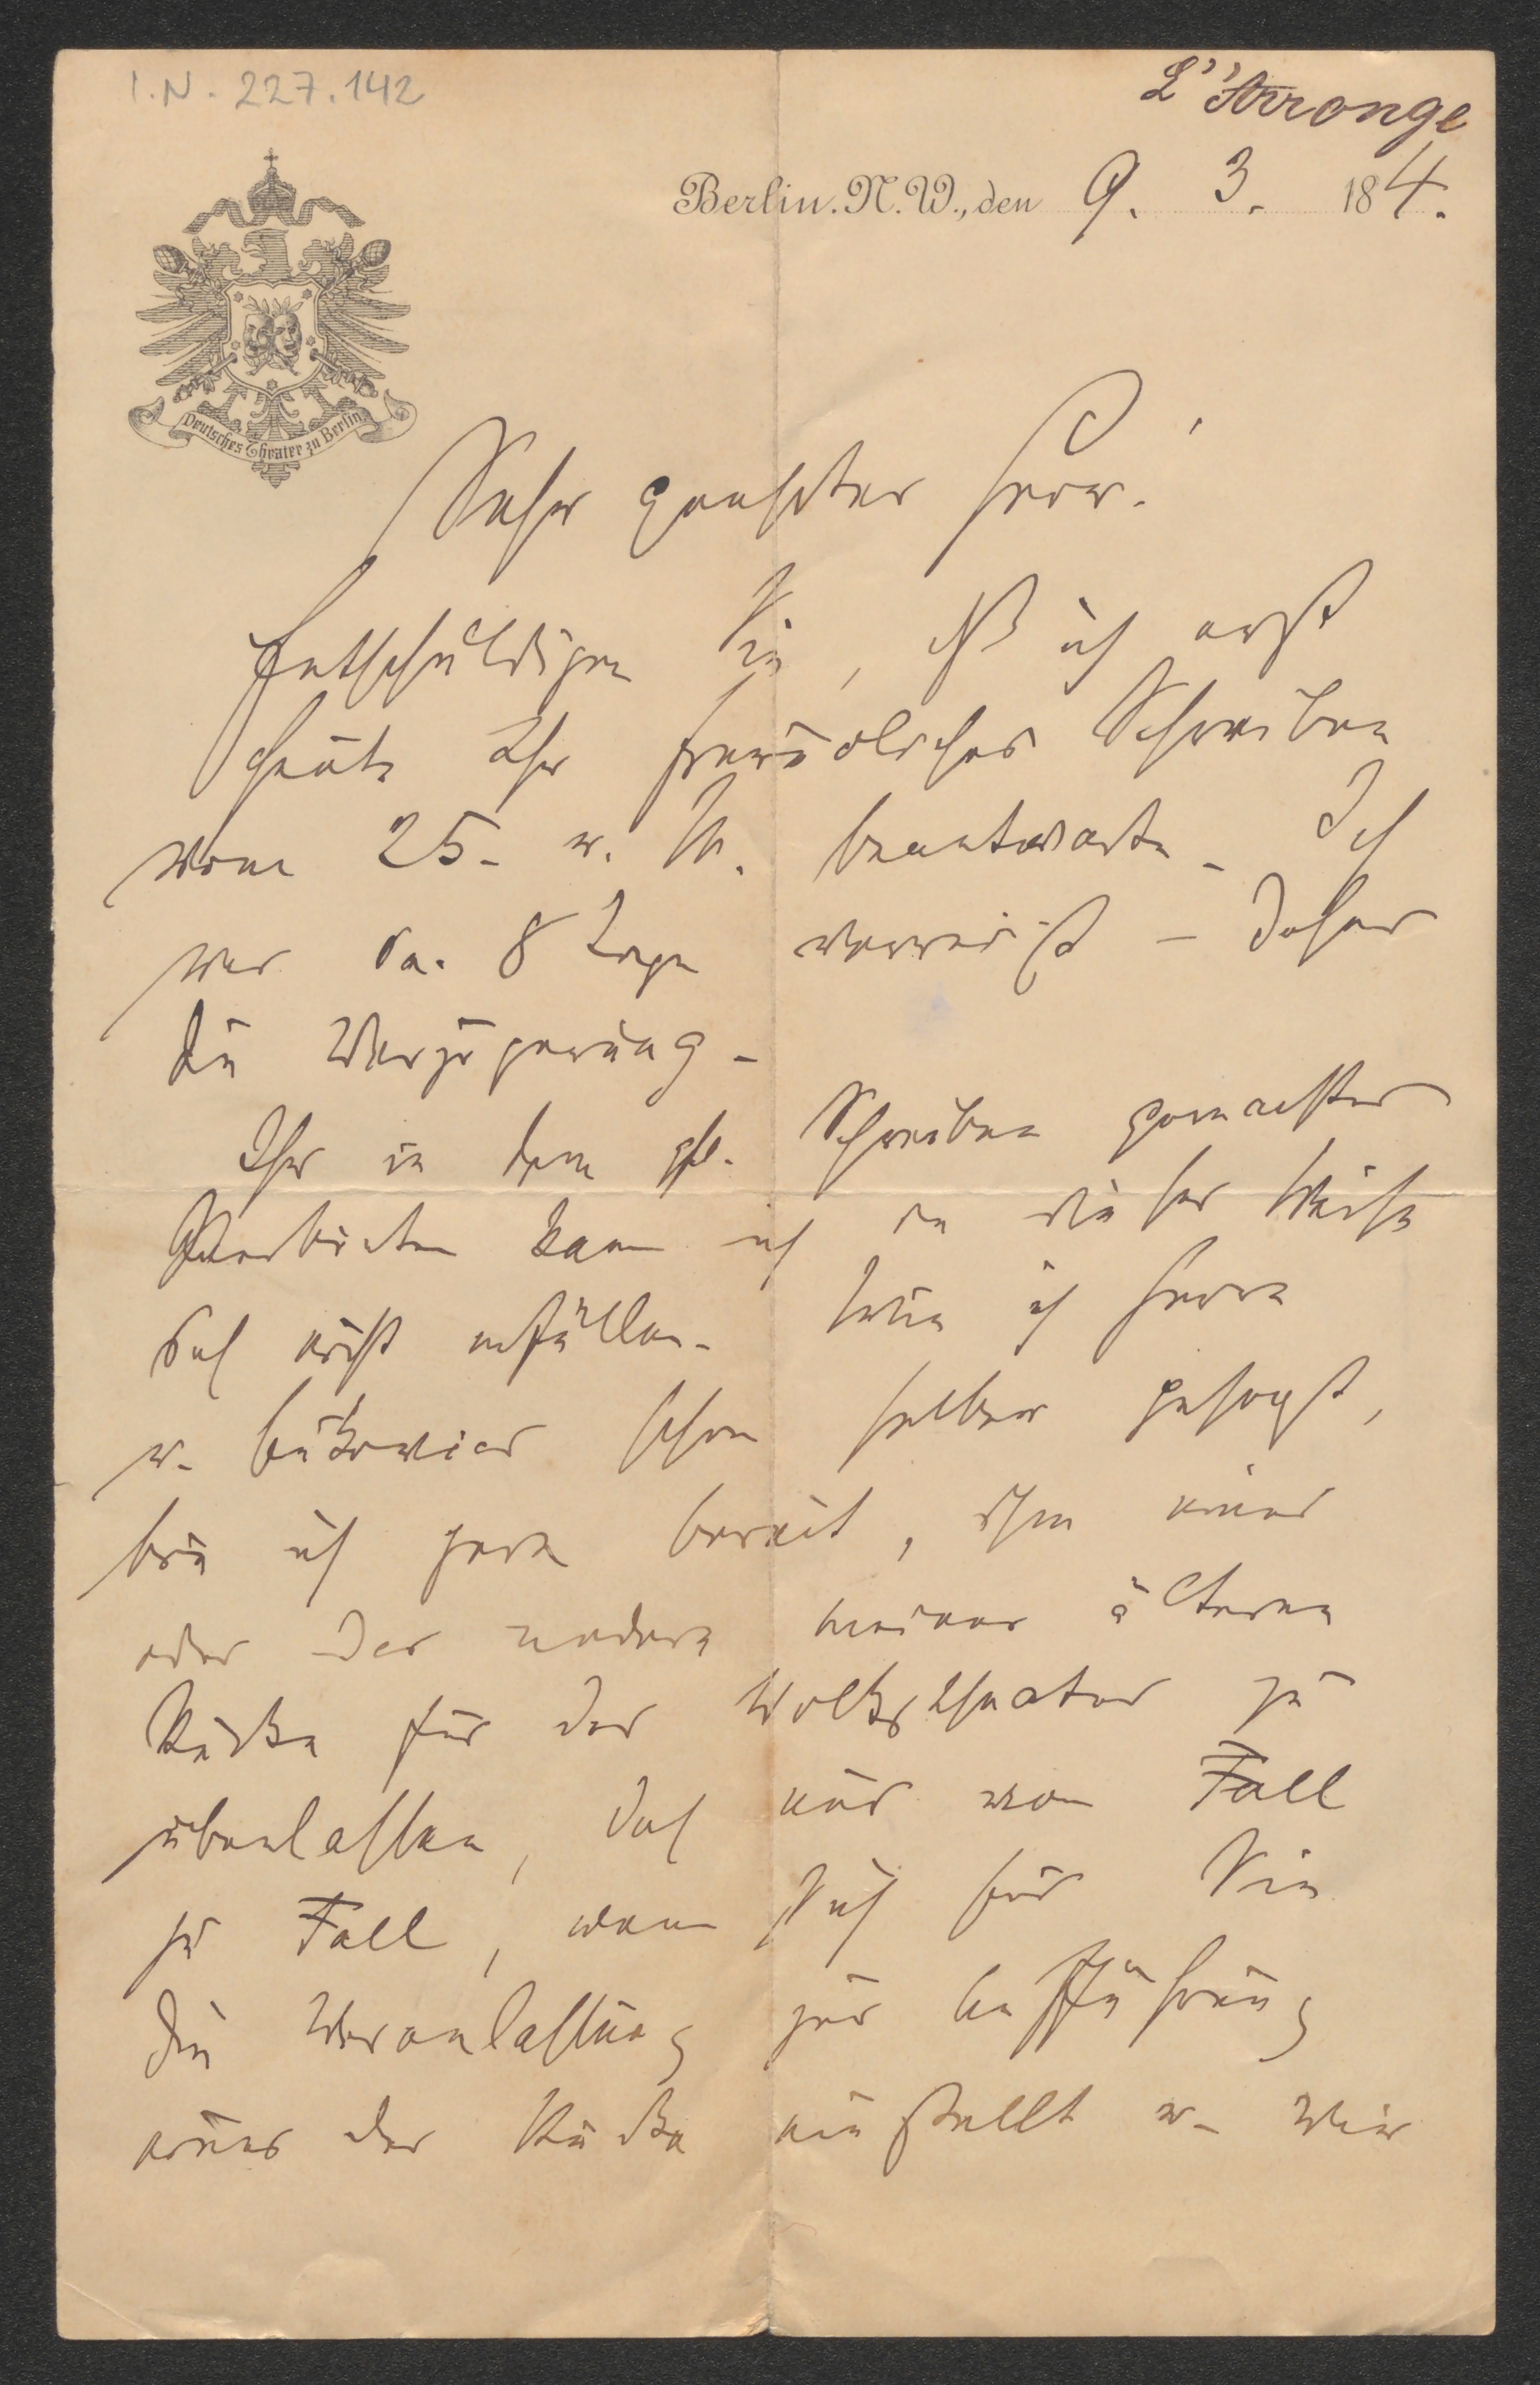 I.N. 227.142
L'Arronge
Berlin. N.W., den 9. 3. 184.
Deutsches Theater zu Berlin
Sehr geehrter Herr.
Entschuldigen Sie, daß ich erst
heute Ihr freundliches Schreiben
vom 25. v. M. beantworte. Ich
war ca. 8 Tage verreist – daher
die Verzögerung.
Ihr in dem gfl. Schreiben gemachtes
kann ich in dieser Weise
nicht erfüllen. Wie ich Herrn
v. Bukovics schon selber gesagt,
bin ich gern bereit, ihm eines
oder das andere meiner älteren
Stücke für das Volkstheater zu
überlassen, doch nur von Fall
zu Fall, wenn sich für Sie
die Veranlassung zur Aufführung
eines der Stücke einstellt u. wir